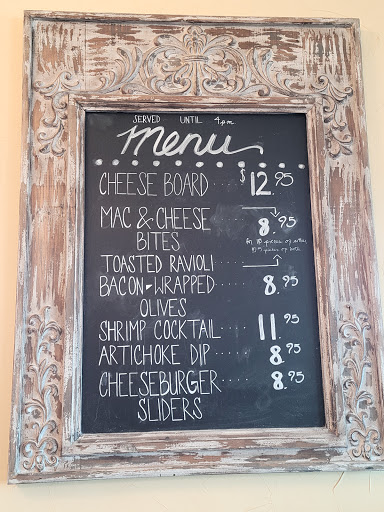 SERVED UNTIL 4pm
Menu
CHEESE BOARD .... $12.95
MAC & CHEESE 8.95
BITES for 10 pieces of either
or 5 pieces of both
TOASTED RAVIOLI
BACON-WRAPPED .... 8.95
OLIVES
SHRIMP COCKTAIL .... 11.95
ARTICHOKE DIP .... 8.95
CHEESEBURGER .... 8.95
SLIDERS